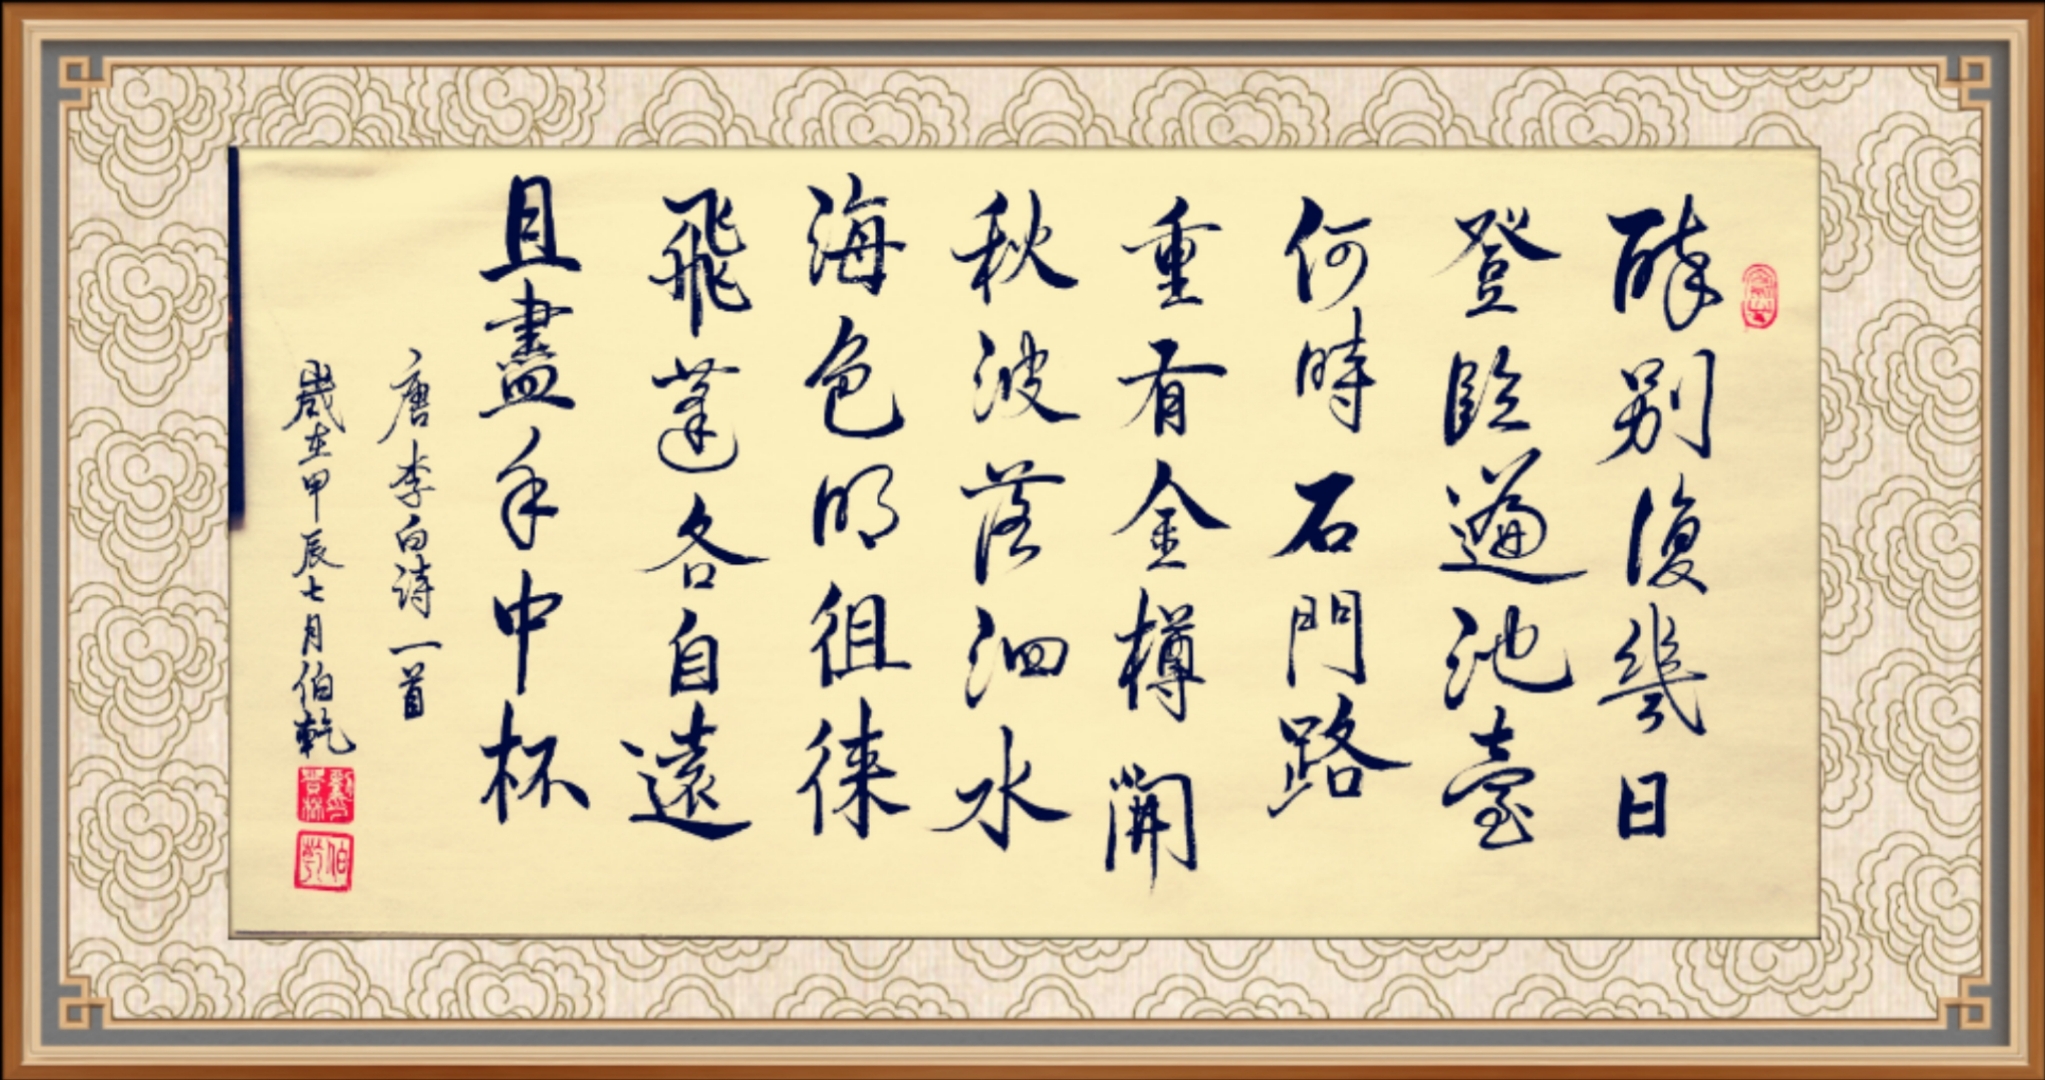 醉別復幾日
登臨遍池臺
何時石門路
重有金樽開
秋波落泗水
海色明徂徠
飛蓬各自遠
且盡手中杯
唐李白诗一首
歲在甲辰七月伯乾
伯乾